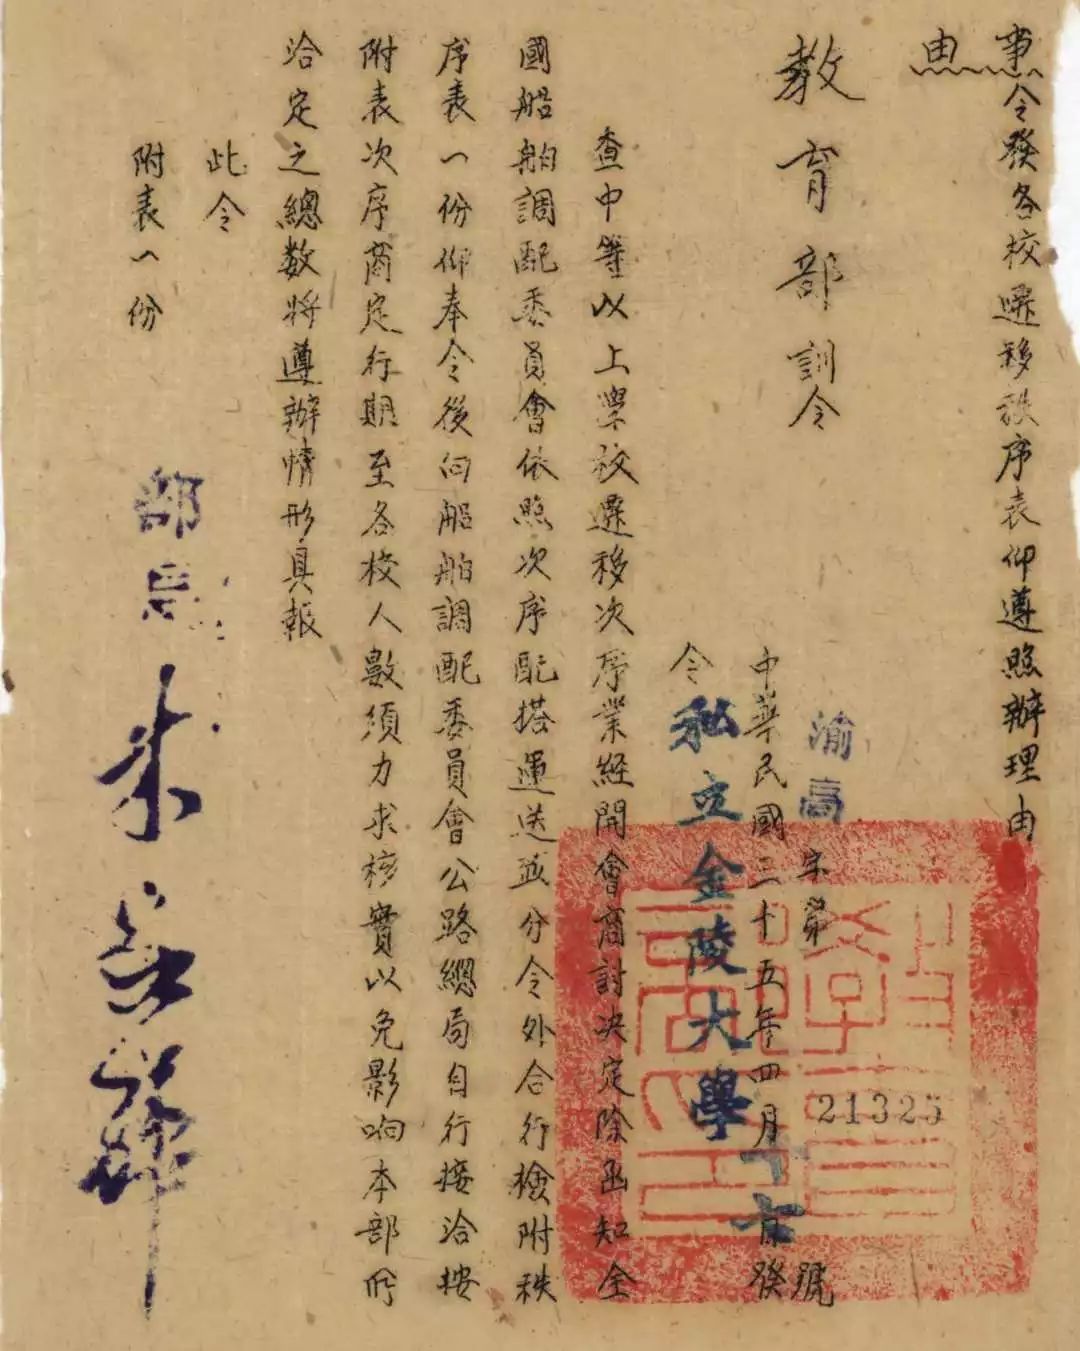 事由
令發各校遷移秩序表仰遵照辦理由
教育部訓令
渝高字第21325號
中華民國三十五年四月十六日發
令私立金陵大學
查中等以上學校遷移次序業經開會商討决定除函知全
國船舶調配委員會依照次序配搭運送或分令外合行檢附秩
序表一份仰奉令後向船舶調配委員會公路總局自行接洽按
附表次序商定行期至各校人數須力求核實以免影响本部所
洽定之總数將遵辦情形具報
此令
附表一份
部長朱家驊